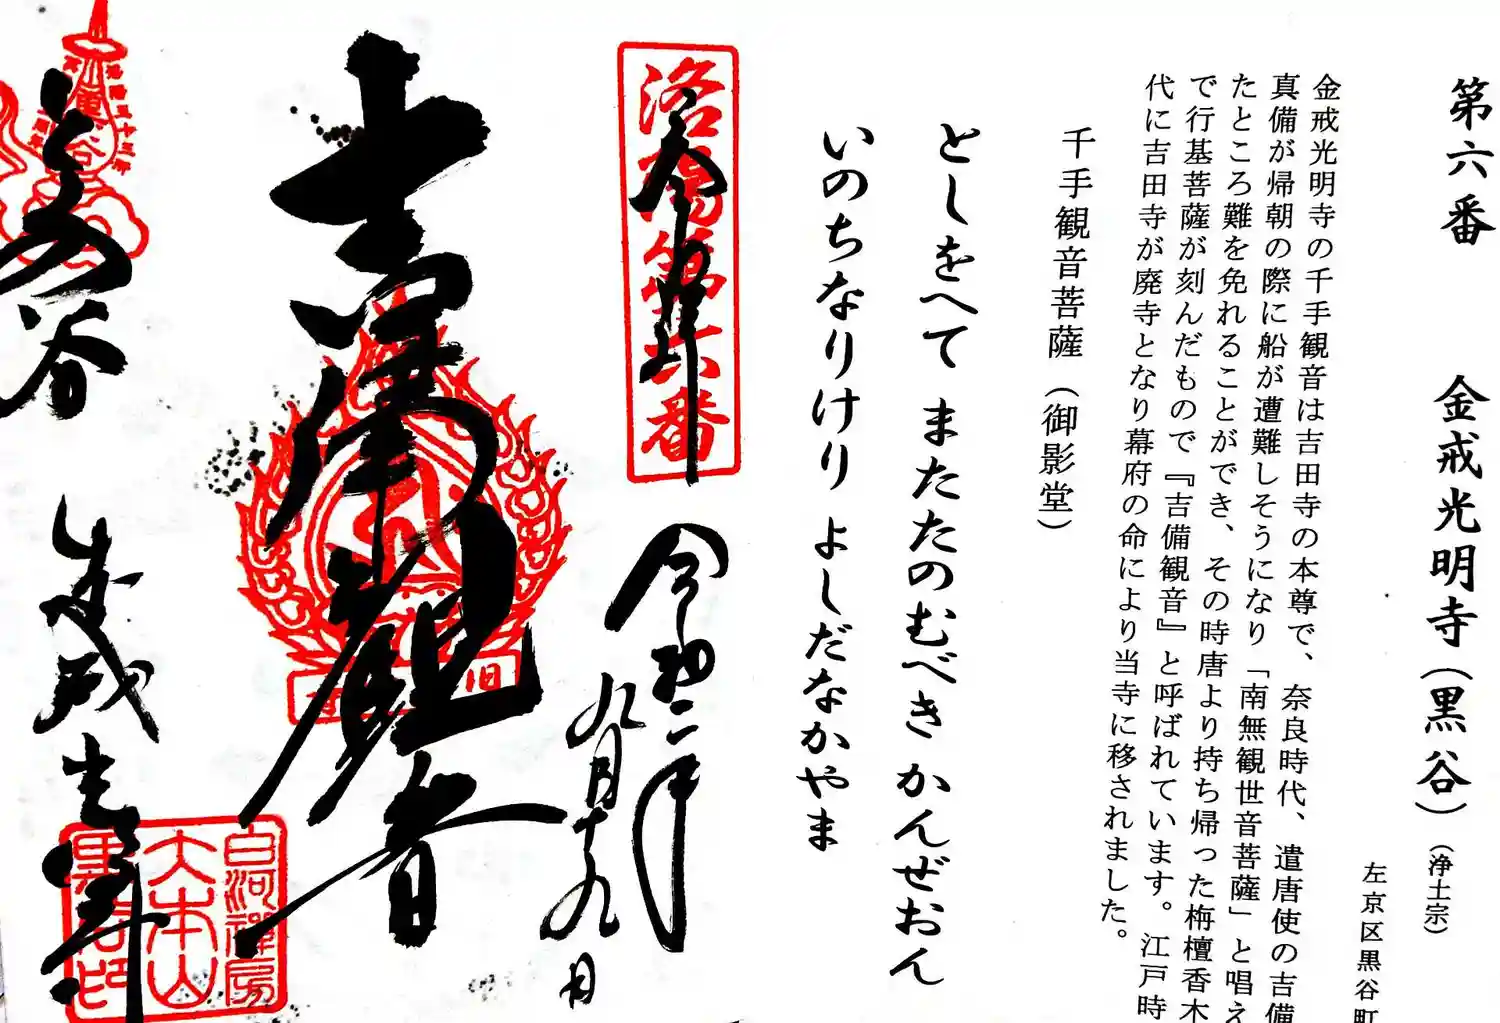 第六番 金戒光明寺(黒谷)(浄土宗)
左京区黒谷町
金戒光明寺の千手観音は吉田寺の本尊で、奈良時代、遣唐使の吉備
真備が帰朝の際に船が遭難しそうになり「南無観世音菩薩」と唱え
たところ難を免れることができ、その時唐より持ち帰った栴檀香木
で行基菩薩が刻んだもので『吉備観音』と呼ばれています。江戸時
代に吉田寺が廃寺となり幕府の命により当寺に移されました。
千手観音菩薩(御影堂)
としをへて またたのむべき かんぜおん
いのちなりけり よしだなかやま
洛陽第六番
奉拝
令和二年
九月十九日
吉備観音
白河禅房
大本山
黒谷
金戒光明寺